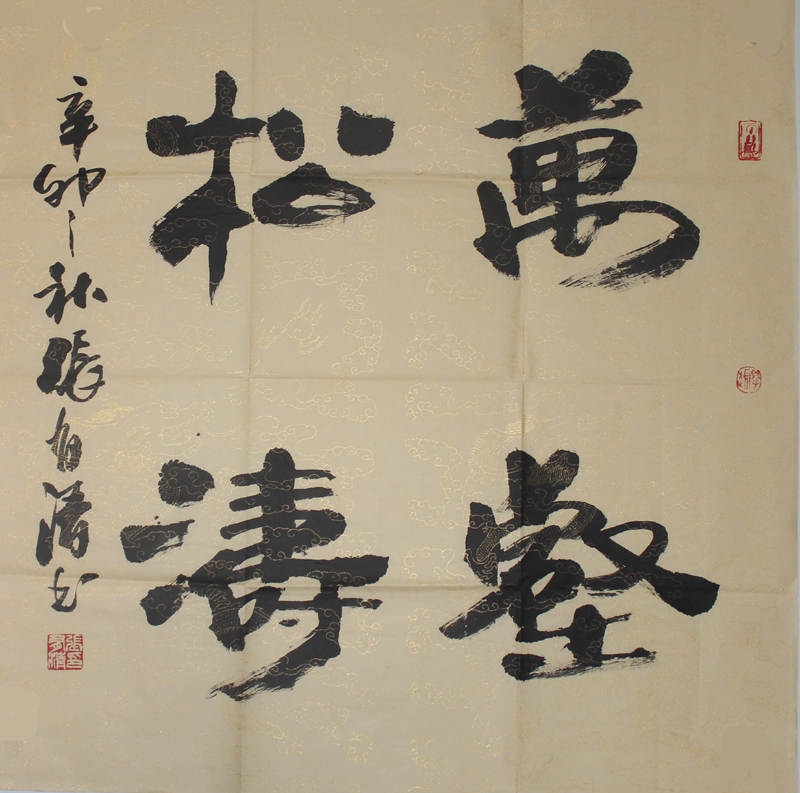 萬壑
松濤
辛卯之秋張有清书